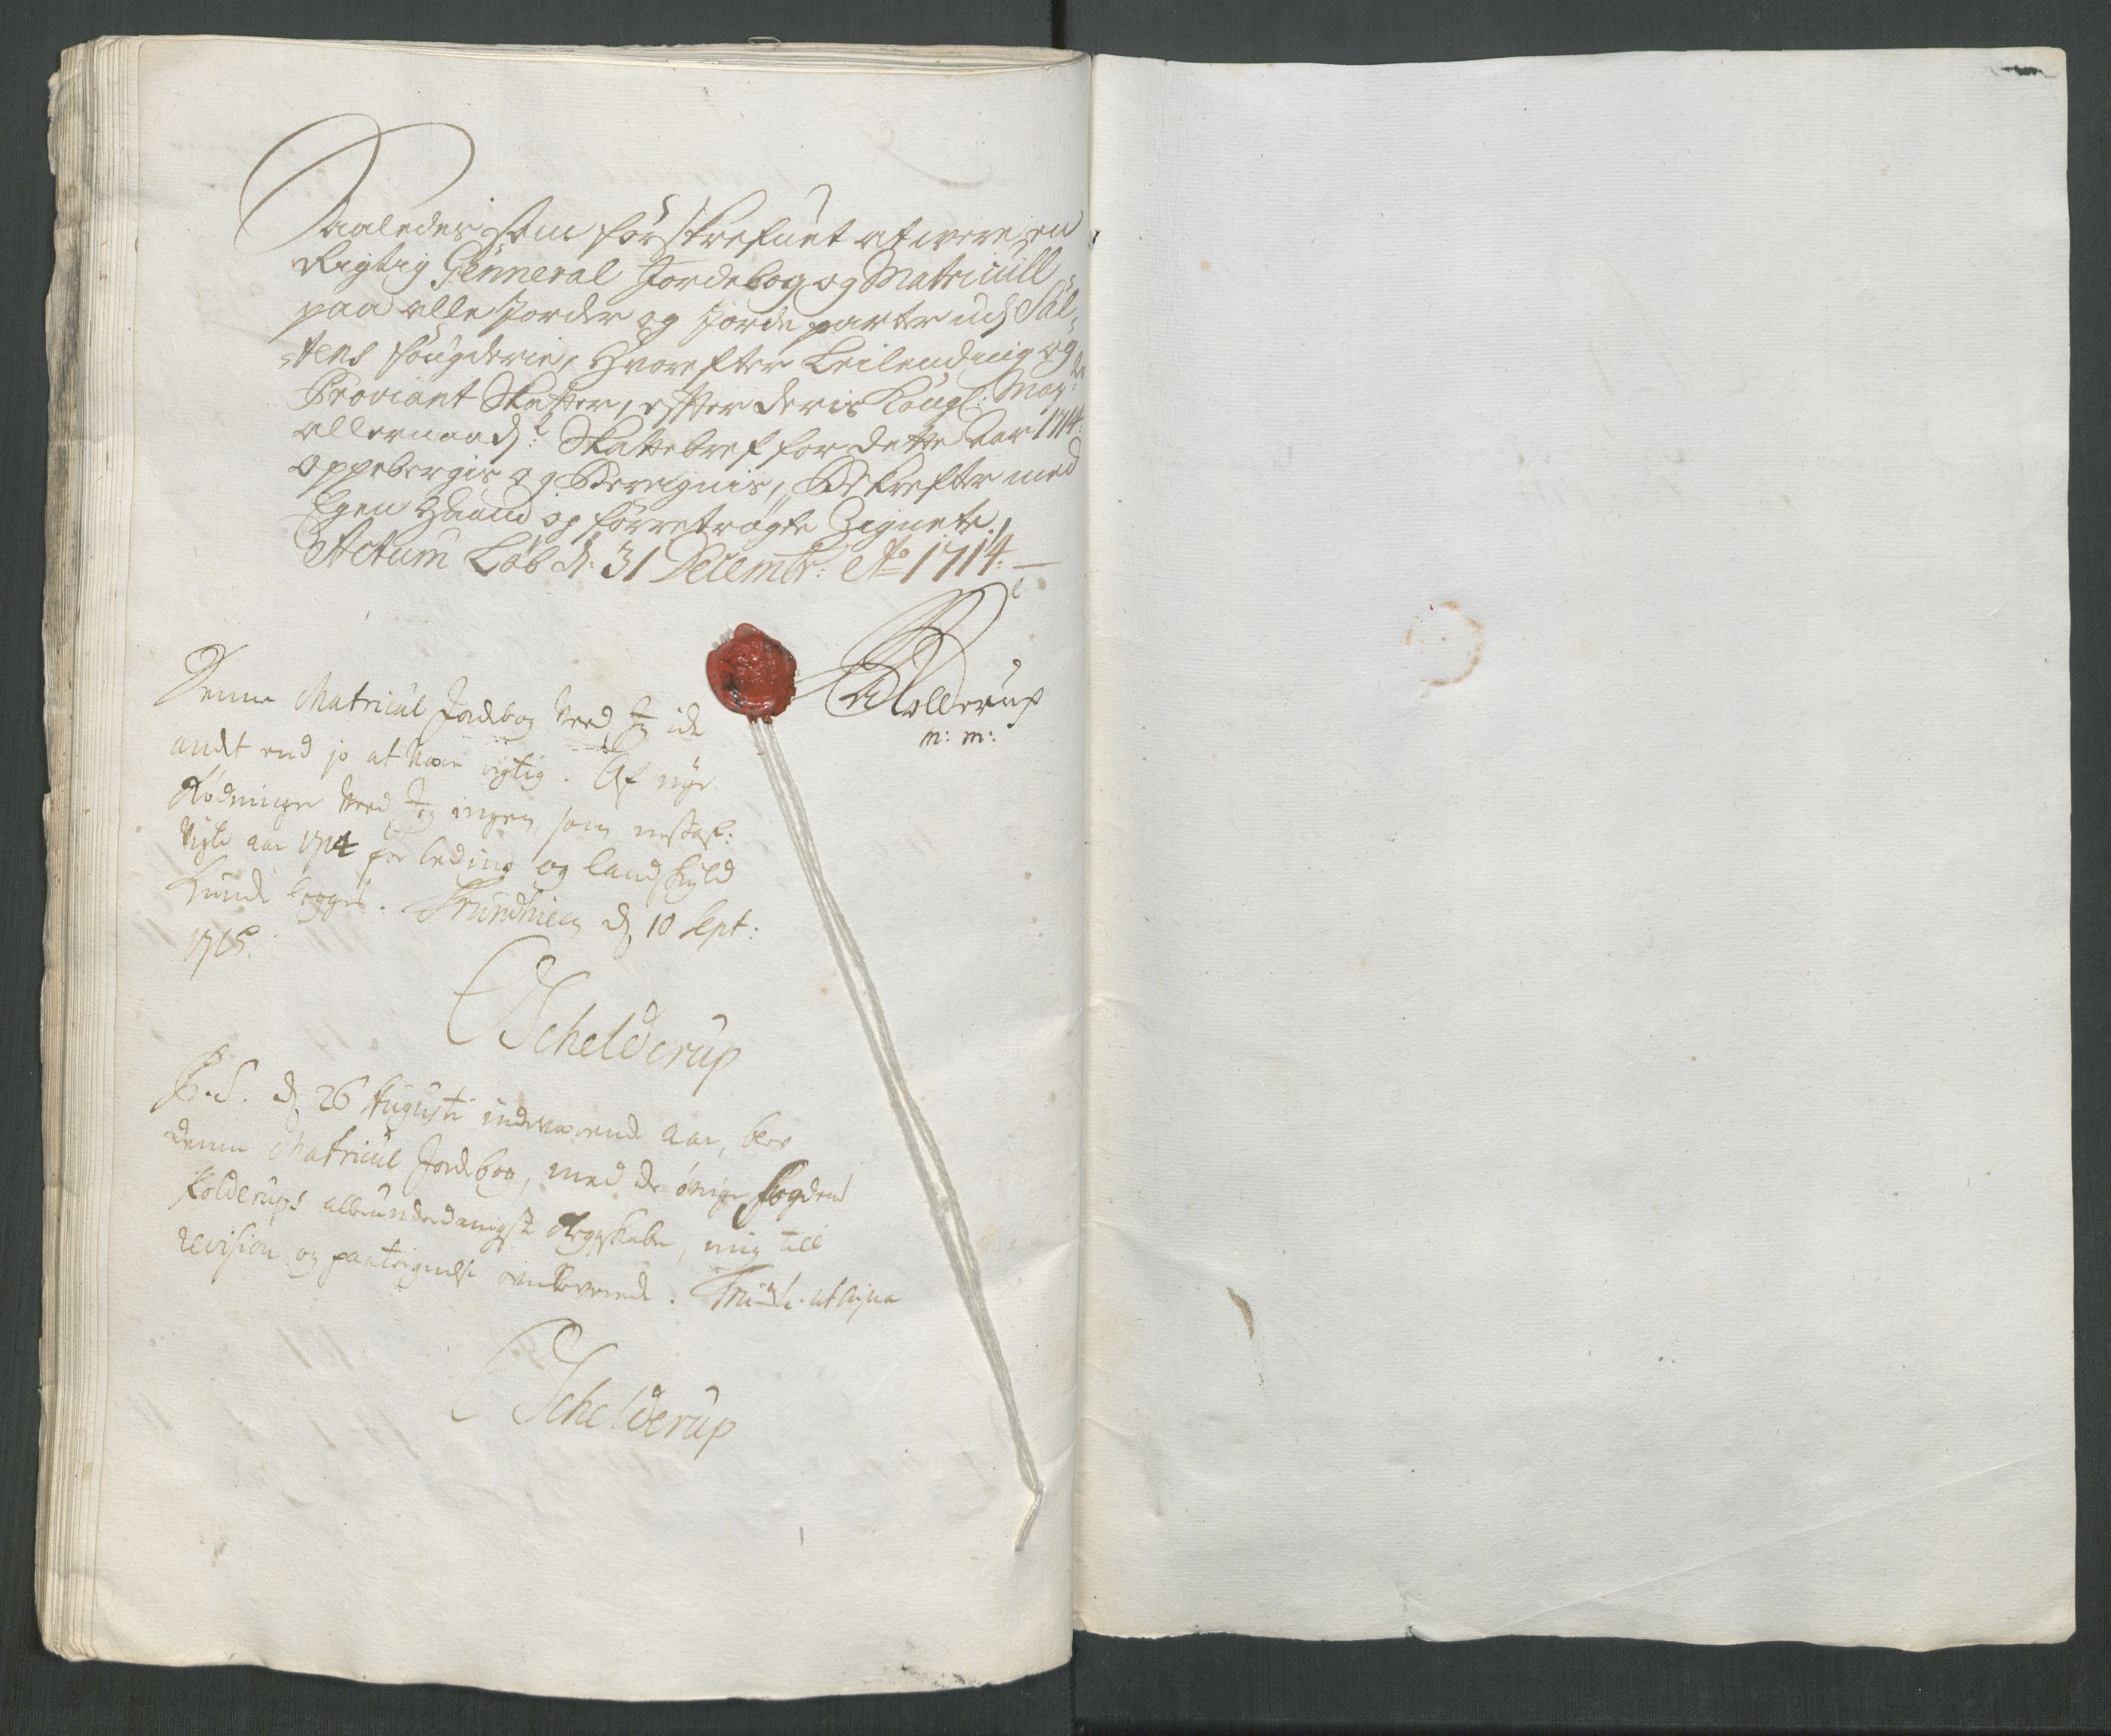 Saaledes som forskrefuet at were en
Rigtig Genneral Jordebog og Matricull
paa alle Jorder og Jorde parter udj Sal-
-tens fougderie, Hvorefter Leilending og
Proviant Skatter, effter deris Kongl: May:
allernaad: Skattebref for dette Aar 1714:
oppebergis og Bereignis, Bekrefter med
Egen Haand og forretrögte Zignete.
Actum Löb d. 31 Decembr: Ao 1714:
Kolderup
m: m:
Denne Matricul Jordbog Veed Jeg icke
andt end jo at være rigtig. Af nye
Rödninger Veed Jeg ingen, som
aar 1714 for leding og landskyld
Kunde legges. Trundhiem d. 10 Sept:
1715.
Schelderup
P.S. d. 26 Augusti indeværende aar, blev
denne Matricul Jordbog, med de övrige fogdens
Kolderups allerunderdanigste Regnskaber, mig till
revision og paategnelse överleverede. Trundh: ut supra
Schelderup